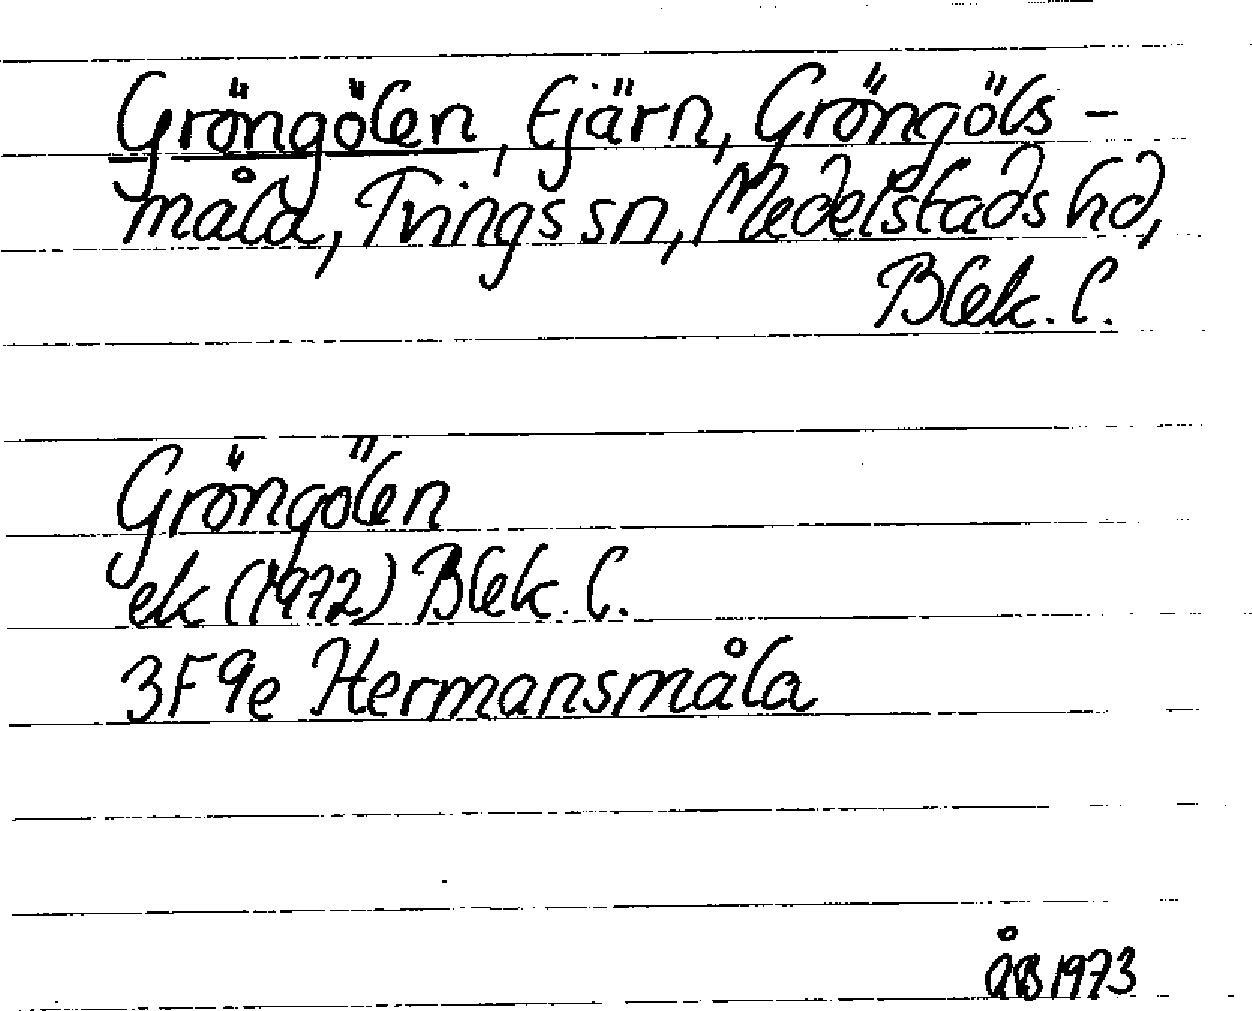 Gröngölen, tjärn, Gröngöls-
måla, Tvings sn, Medelstads hd,
Blek. l.
Gröngölen
ek (1972) Blek. l.
3F 9e Hermansmåla
ÅB 1973